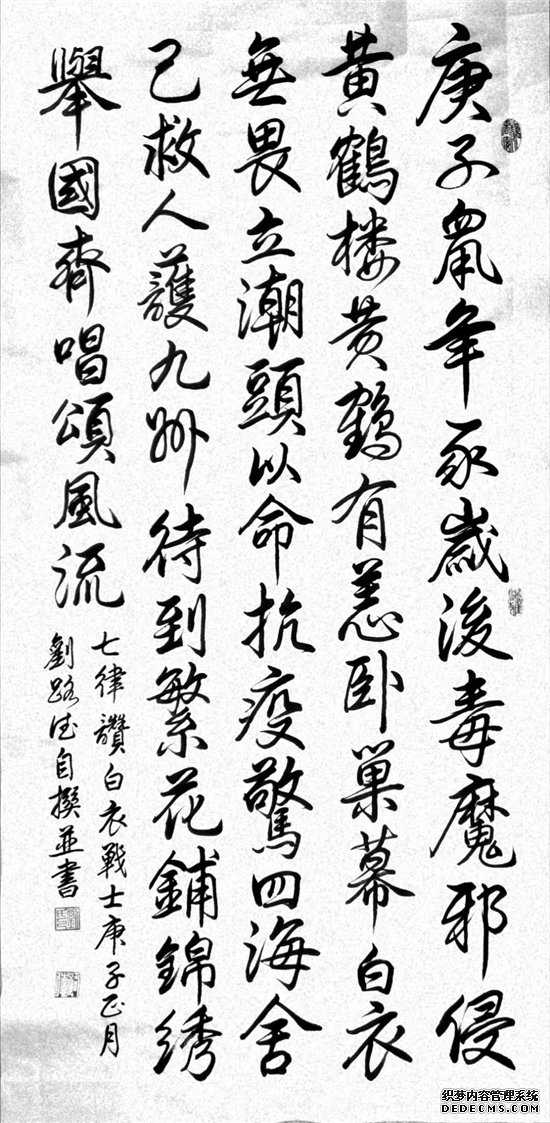 庚子鼠年豕歲後毒魔邪侵
黄鶴楼黄鶴有恙卧巢幕白衣
無畏立潮頭以命抗疫驚四海舍
己救人護九州待到繁花鋪錦綉
舉國齊唱頌風流
七律讚白衣戰士庚子正月
劉路德自撰並書
织梦内容管理系统
DEDECMS.COM